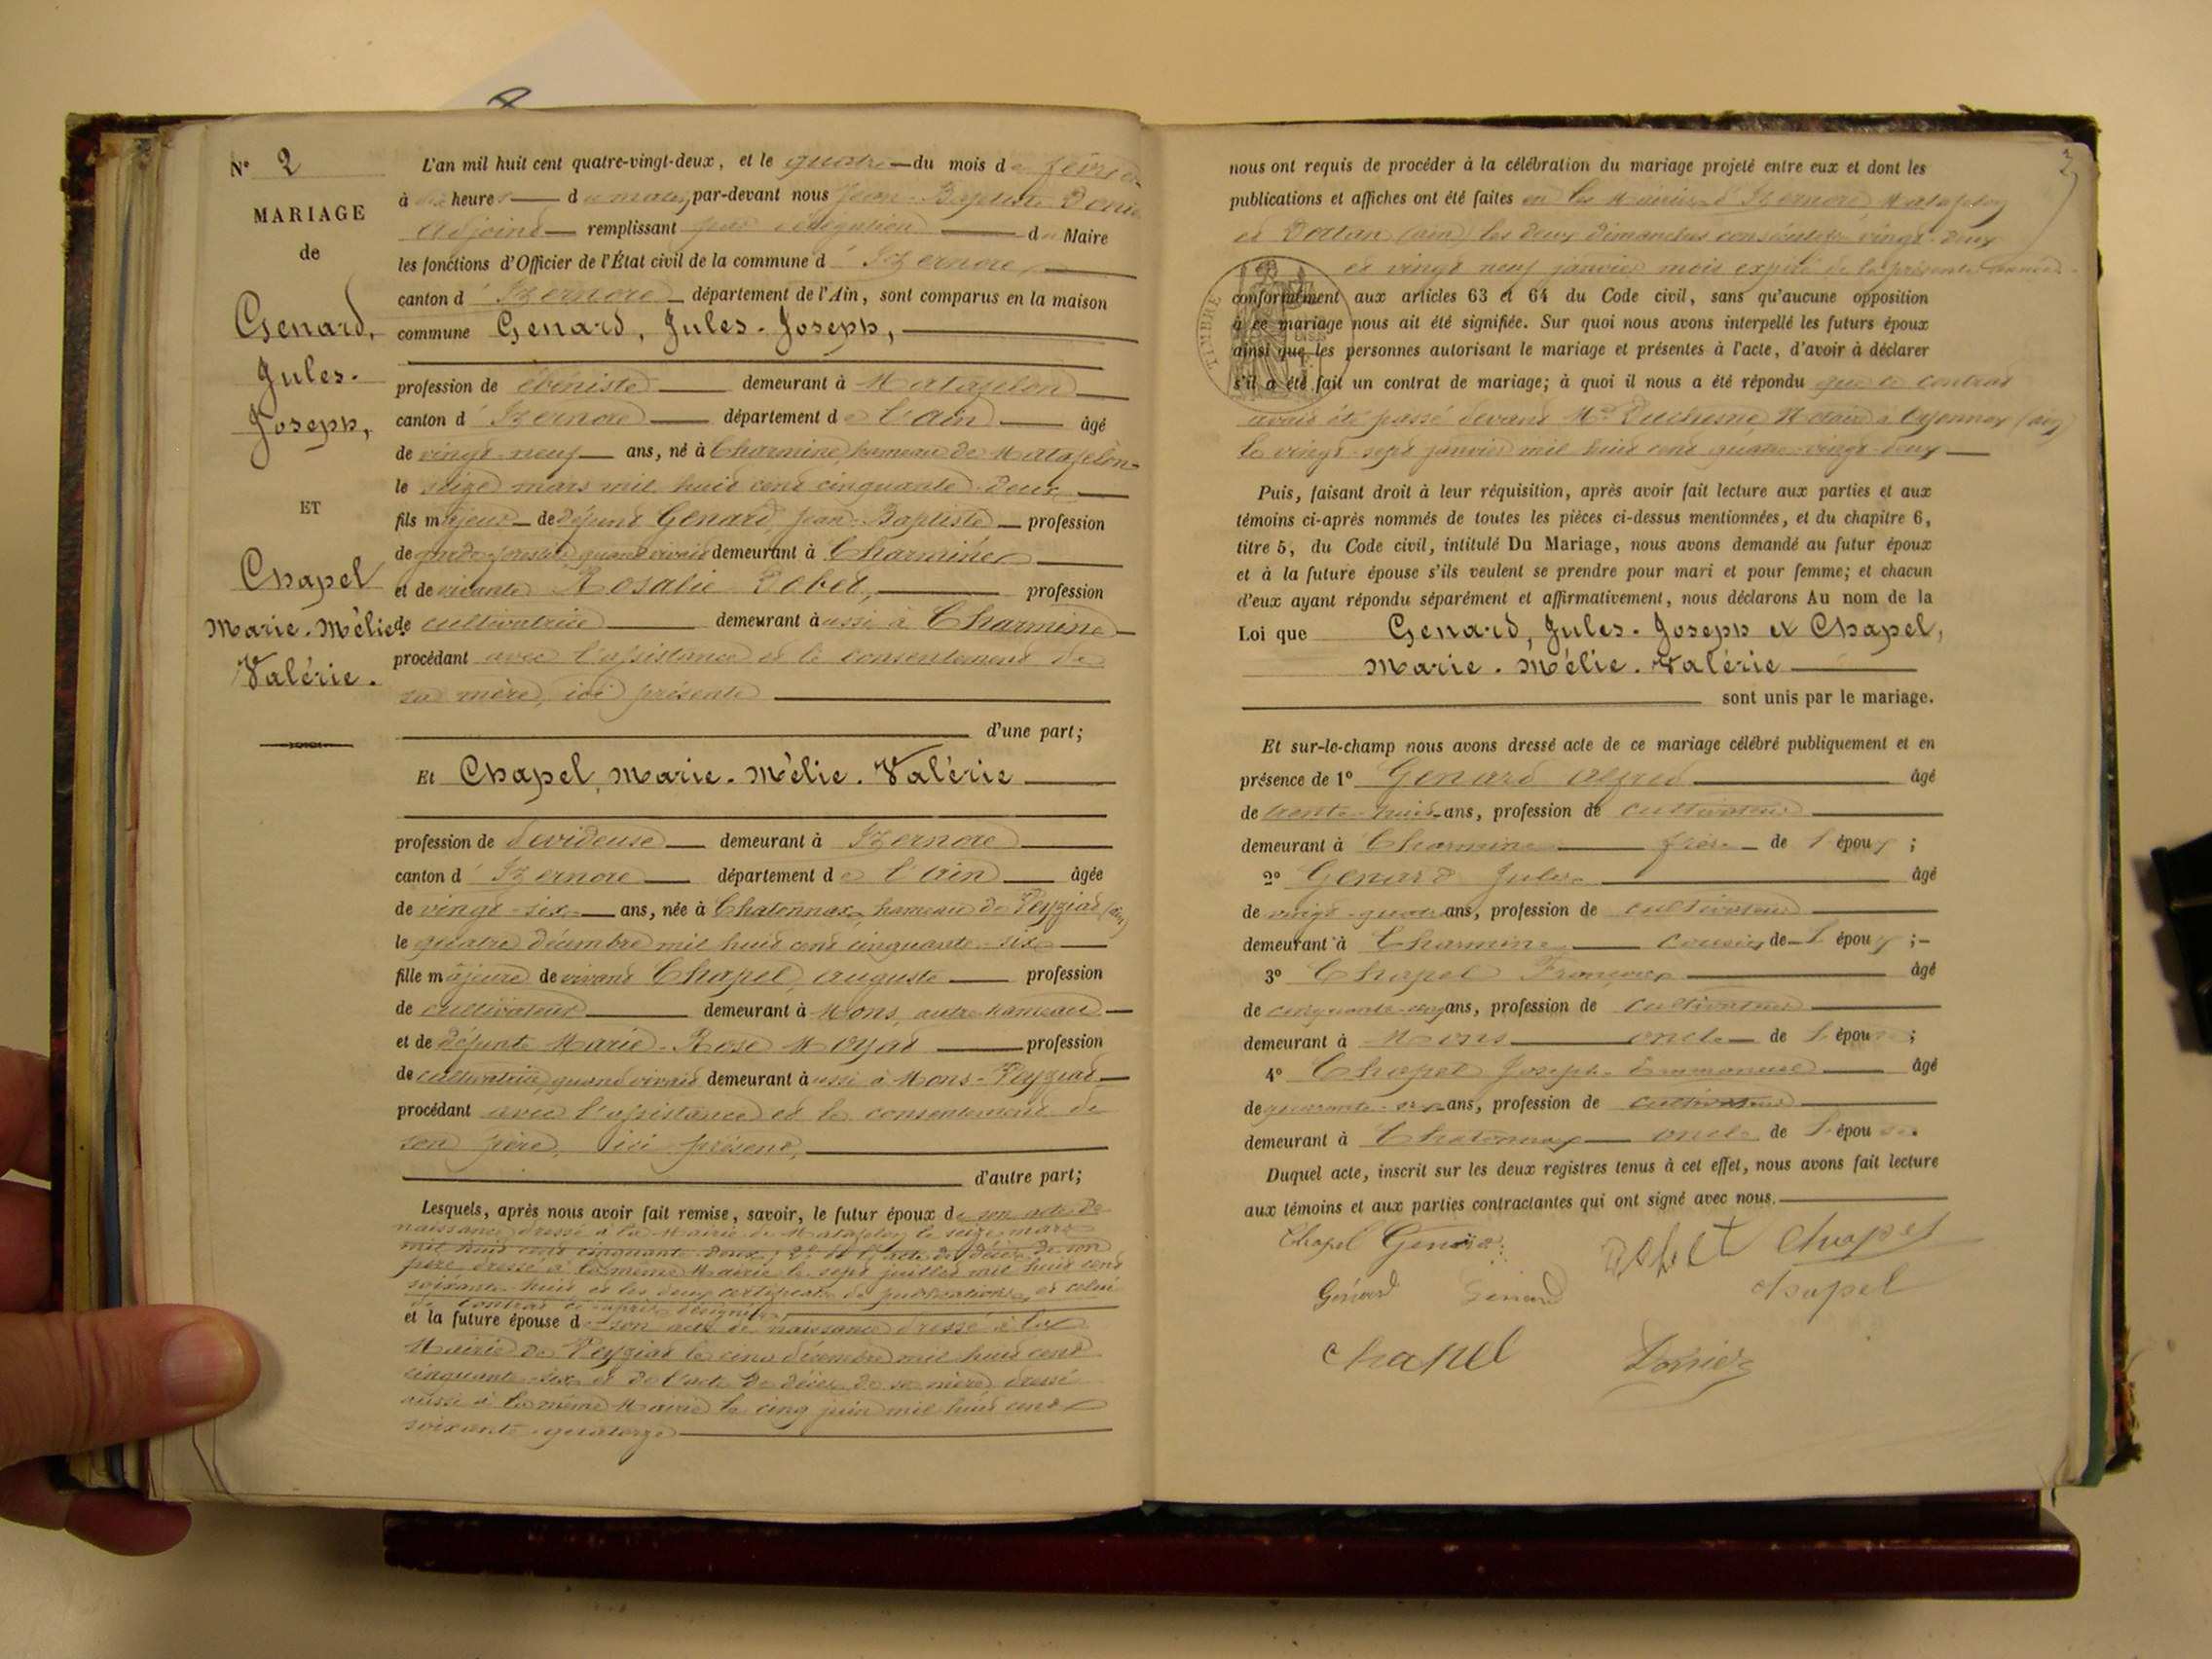 N° 2
MARIAGE
de
Genard,
Jules-
Joseph,
ET
Chapel
Marie-Mélie-
Valérie.
L'an mil huit cent quatre-vingt-deux, et le quatre du mois de février
à heures du matin, par-devant nous Jean-Baptiste
Adjoint remplissant par délégation du Maire
les fonctions d'Officier de l'État civil de la commune d'Izernore,
canton d'Izernore département de l'Ain, sont comparus en la maison
commune Genard, Jules-Joseph,
profession de ébéniste demeurant à Matafelon
canton d'Izernore département de l'Ain âgé
de vingt-neuf ans, né à Charmine, hameau de Matafelon
le seize mars mil huit cent cinquante-deux
fils majeur de défunt Genard, Jean-Baptiste profession
de garde-forestier quand vivait demeurant à Charmine
et de vivante Rosalie Pobel, profession
de cultivatrice demeurant aussi à Charmine
procédant avec l'assistance et le consentement de
sa mère, ici présente
d'une part;
Et Chapel, Marie-Mélie-Valérie
profession de devideuse demeurant à Izernore
canton d'Izernore département de l'Ain âgée
de vingt-six ans, née à Chatonnax, hameau de Peyziat (ain)
le quatre décembre mil huit cent cinquante-six
fille majeure de vivant Chapel, Auguste profession
de cultivateur demeurant à Mons, autre hameau
et de défunte Marie-Rose Moyat profession
de cultivatrice, quand vivait demeurant aussi à Mons-Peyziat
procédant avec l'assistance et le consentement de
son père, ici présent,
d'autre part;
Lesquels, après nous avoir fait remise, savoir, le futur époux de son acte de
naissance dressé à la Mairie de Matafelon le seize mars
mil huit cent cinquante-deux; 2° de l'acte de décès de son
père dressé à la même Mairie le sept juillet mil huit cent
soixante-huit et les deux certificats de publications et celui
de contrat ci-après désignés
et la future épouse de son acte de naissance dressé à la
Mairie de Peyziat le cinq décembre mil huit cent
cinquante-six et de l'acte de décès de sa mère, dressé
aussi à la même Mairie le cinq juin mil huit cent
soixante-quatorze
nous ont requis de procéder à la célébration du mariage projeté entre eux et dont les
publications et affiches ont été faites en les Mairies d'Izernore Matafelon
et Dortan (ain) les deux dimanches consécutifs vingt-deux
et vingt neuf janvier mois expiré de la présente année
TIMBRE
conformément aux articles 63 et 64 du Code civil, sans qu'aucune opposition
à ce mariage nous ait été signifiée. Sur quoi nous avons interpellé les futurs époux
ainsi que les personnes autorisant le mariage et présentes à l'acte, d'avoir à déclarer
s'il a été fait un contrat de mariage; à quoi il nous a été répondu que le contrat
avait été passé devant Me Duchesne, Notaire à Oyonnax (ain)
le vingt-sept janvier mil huit cent quatre-vingt-deux
Puis, faisant droit à leur réquisition, après avoir fait lecture aux parties et aux
témoins ci-après nommés de toutes les pièces ci-dessus mentionnées, et du chapitre 6,
titre 5, du Code civil, intitulé Du Mariage, nous avons demandé au futur époux
et à la future épouse s'ils veulent se prendre pour mari et pour femme; et chacun
d'eux ayant répondu séparément et affirmativement, nous déclarons Au nom de la
Loi que Genard, Jules-Joseph et Chapel,
Marie-Mélie-Valérie
sont unis par le mariage.
Et sur-le-champ nous avons dressé acte de ce mariage célébré publiquement et en
présence de 1° Genard Alfred âgé
de trente-huit ans, profession de cultivateur
demeurant à Charmine frère de l'époux;
2° Genard Jules âgé
de vingt-quatre ans, profession de cultivateur
demeurant à Charmine cousin de l'époux;
3° Chapel François âgé
de cinquante-cinq ans, profession de cultivateur
demeurant à Mons oncle de l'épouse;
4° Chapel Joseph-Emmanuel âgé
de quarante-six ans, profession de cultivateur
demeurant à Chatonnax oncle de l'épouse.
Duquel acte, inscrit sur les deux registres tenus à cet effet, nous avons fait lecture
aux témoins et aux parties contractantes qui ont signé avec nous.
Chapel Genard Chapel
Génard Génard Chapel
Chapel